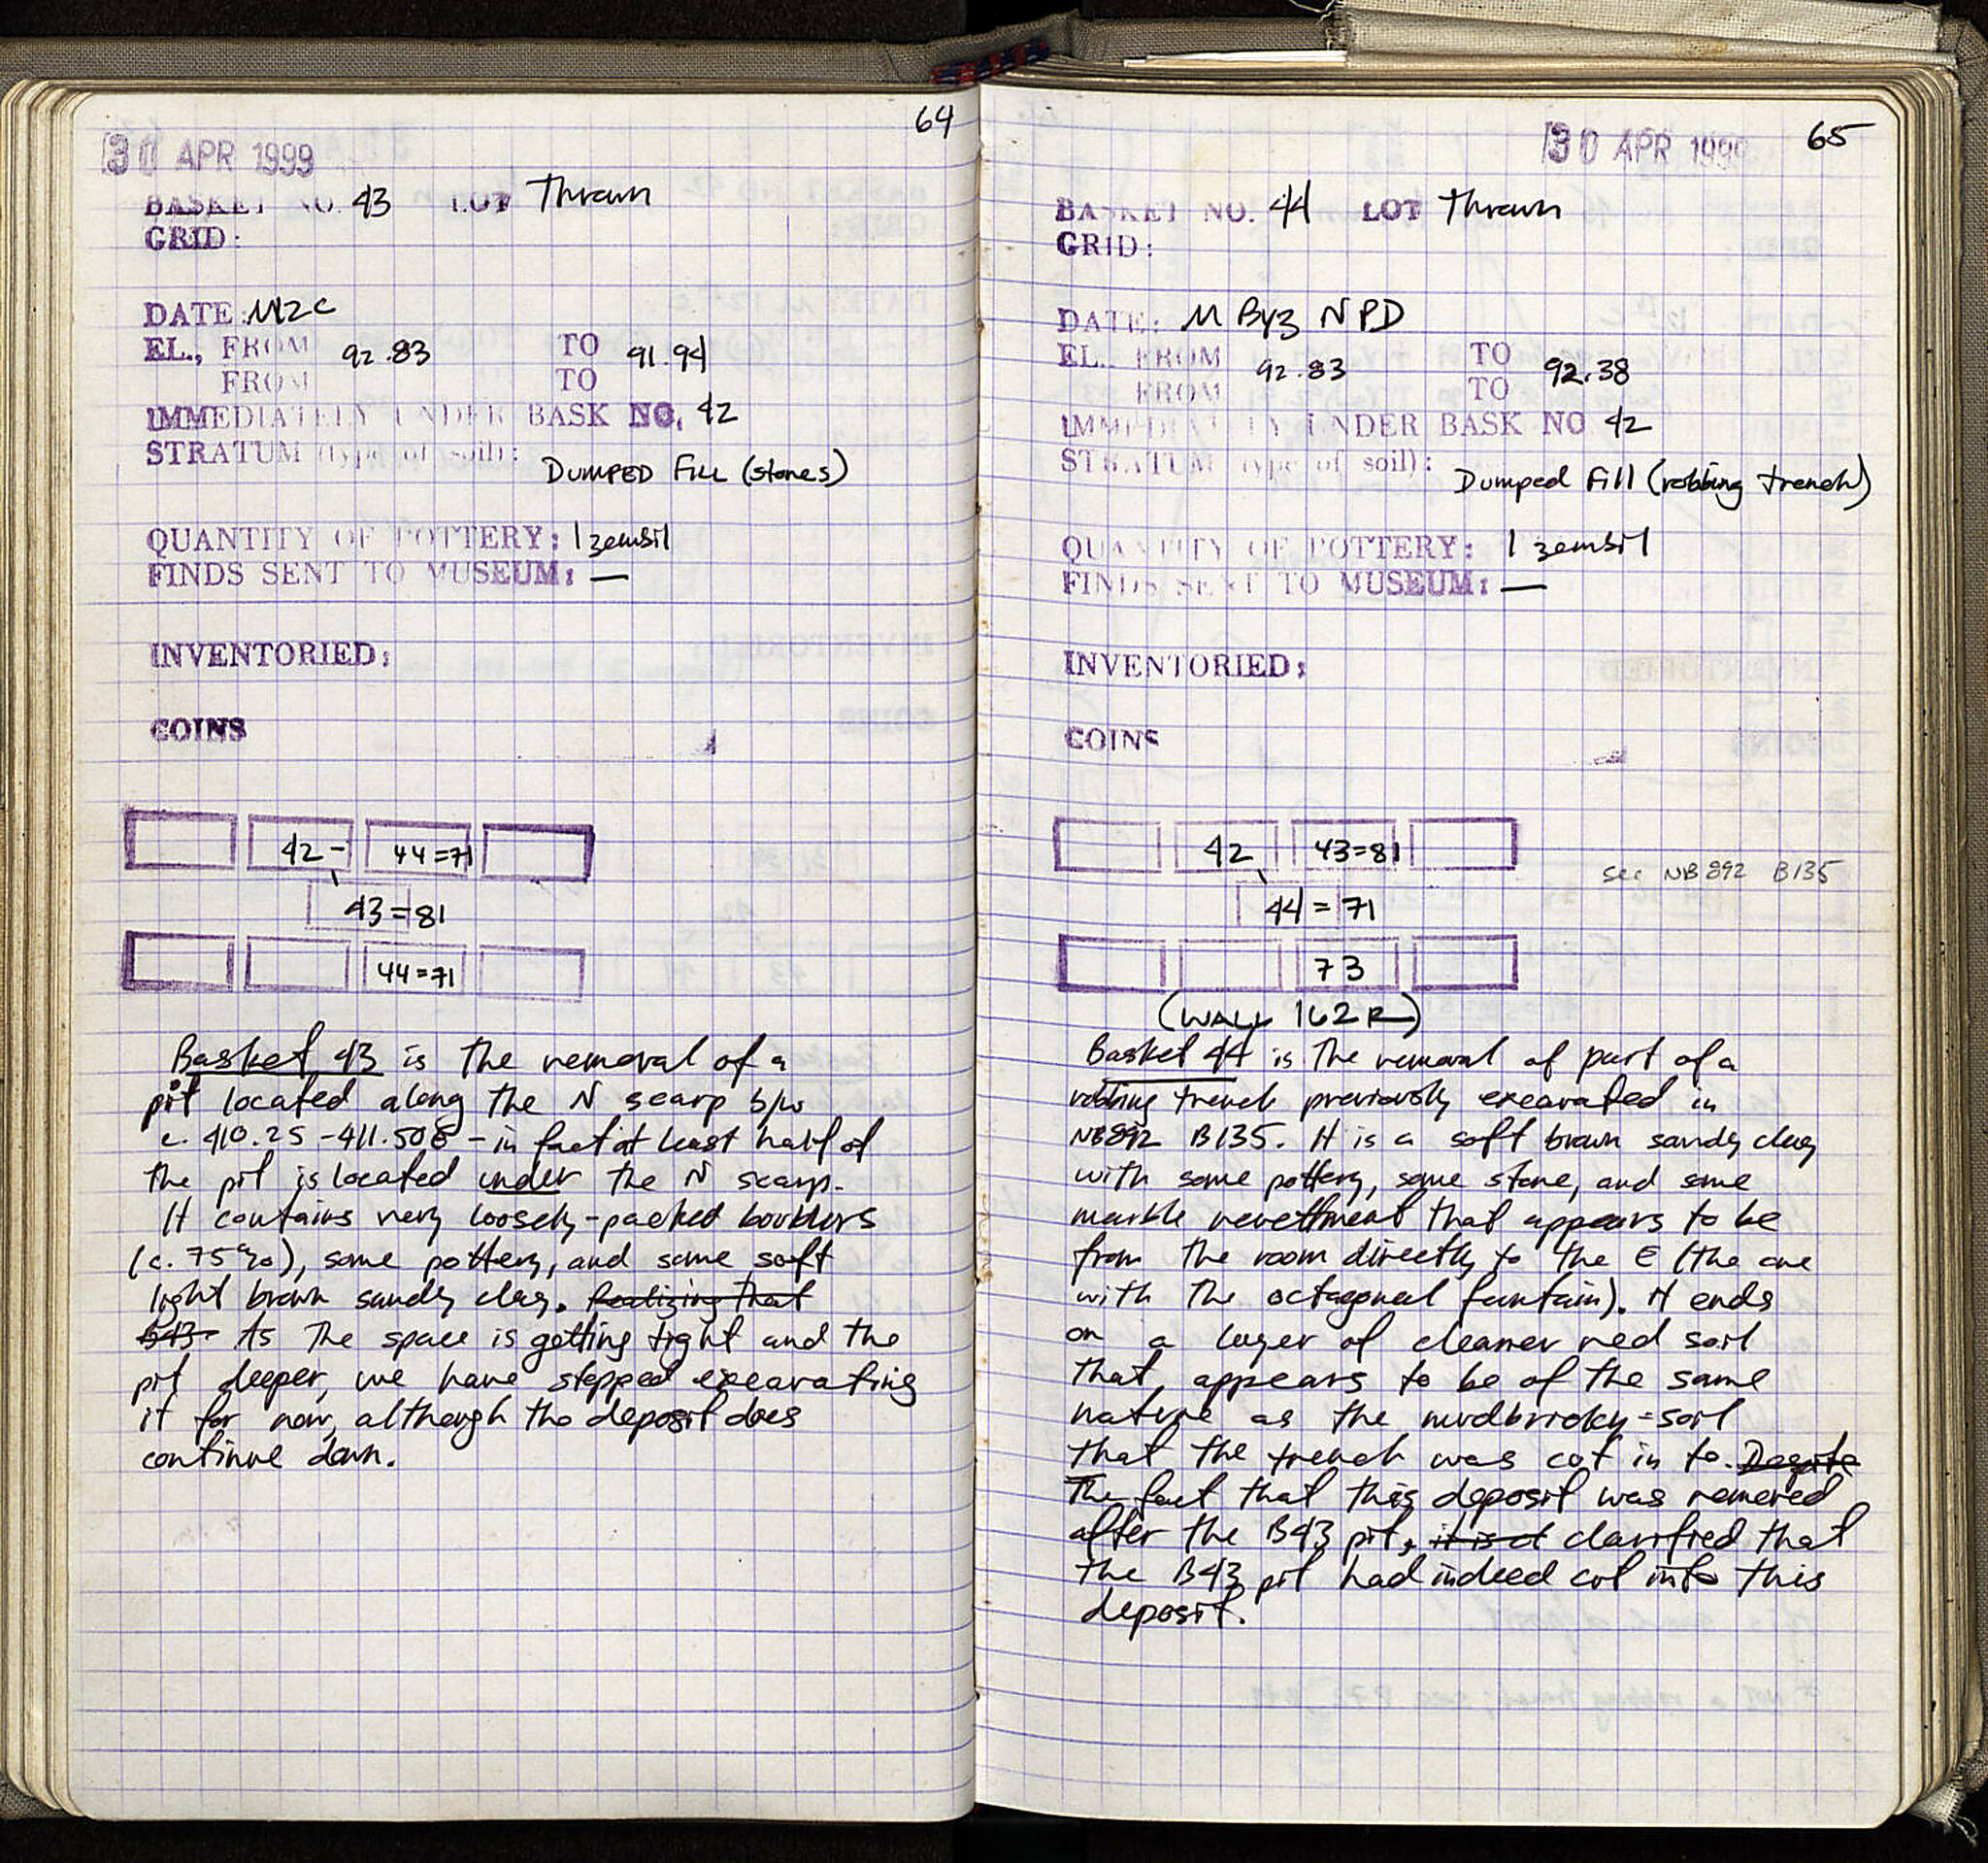 64
30 APR 1999
BASKET NO. 43 LOT Thrown
GRID:
DATE: M12C
EL., FROM 92.83 TO 91.94
FROM TO
IMMEDIATELY UNDER BASK NO. 42
STRATUM (type of soil): DUMPED FILL (stones)
QUANTITY OF POTTERY: 1 zembil
FINDS SENT TO MUSEUM: —
INVENTORIED:
COINS
42- 44=71
43=81
44=71
Basket 43 is the removal of a
pit located along the N scarp b/w
c. 410.25 - 411.50E - in fact at least half of
the pit is located under the N scarp.
It contains very loosely-packed boulders
(c. 75%), some pottery, and some soft
light brown sandy clay. Realizing that
B43 As the space is getting tight and the
pit deeper, we have stopped excavating
it for now, although the deposit does
continue down.
65
30 APR 1999
BASKET NO. 44 LOT Thrown
GRID:
DATE: M Byz NPD
EL., FROM 92.83 TO 92.38
FROM TO
IMMEDIATELY UNDER BASK NO 42
STRATUM (type of soil): Dumped fill (robbing trench)
QUANTITY OF POTTERY: 1 zembil
FINDS SENT TO MUSEUM: —
INVENTORIED:
COINS
42 43=81
see NB 892 B135
44=71
73
(WALL 162R)
Basket 44 is the removal of part of a
robbing trench previously excavated in
NB892 B135. It is a soft brown sandy clay
with some pottery, some stone, and some
marble revettment that appears to be
from the room directly to the E (the one
with the octagonal fountain). It ends
on a layer of cleaner red soil
that appears to be of the same
nature as the mudbricky-soil
that the trench was cut in to. Despite
The fact that this deposit was removed
after the B43 pit, it is cl clarified that
the B43 pit had indeed cut into this
deposit.